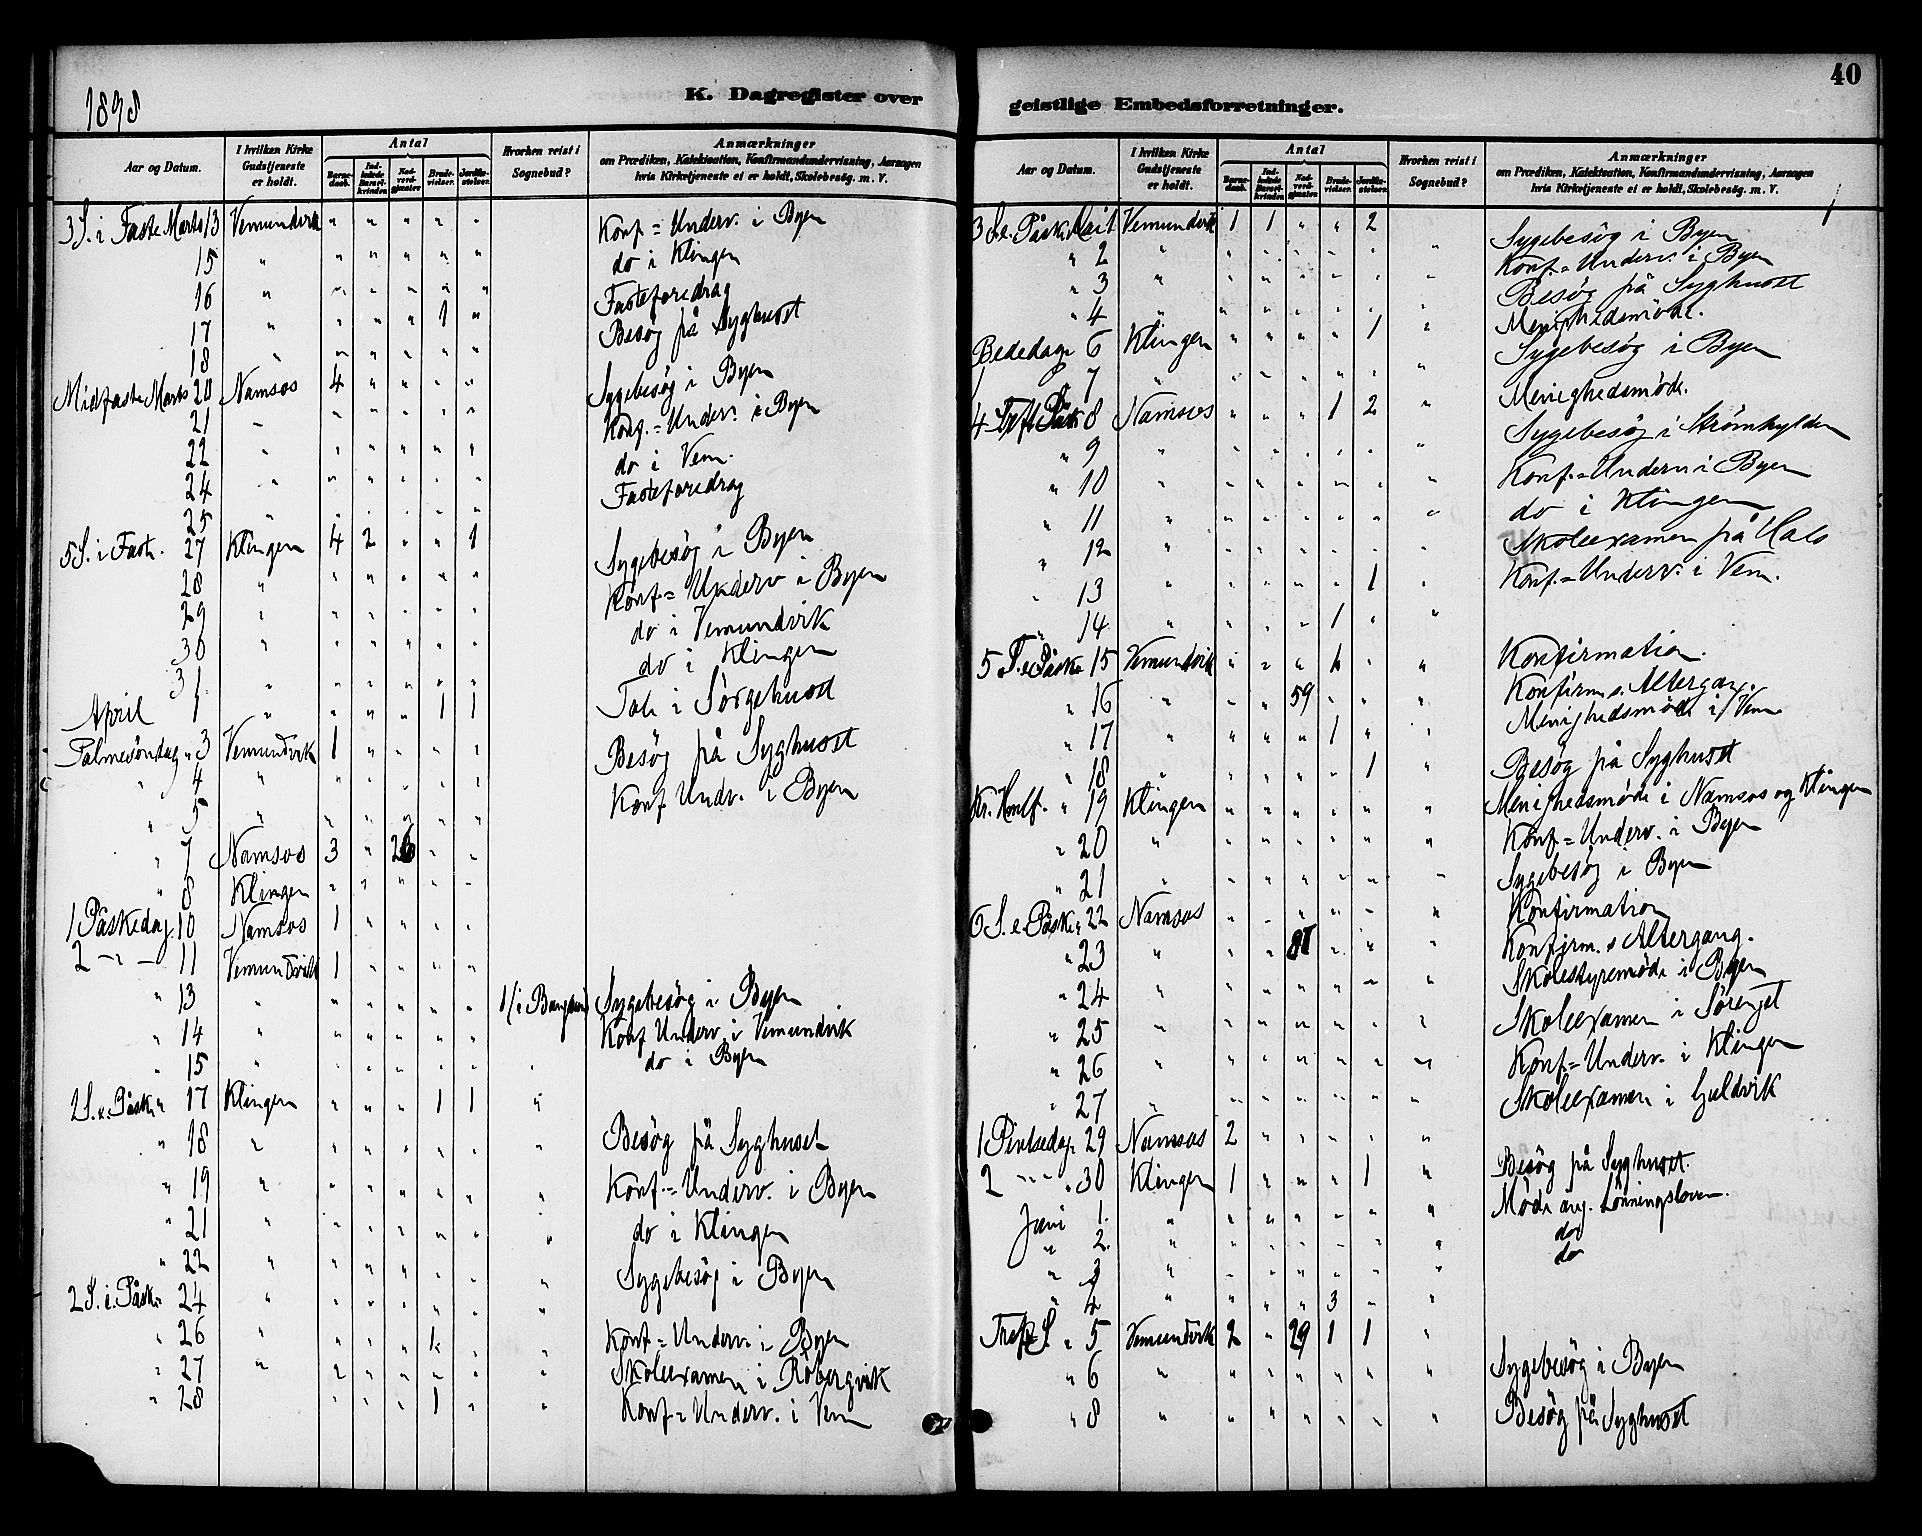 1898
K. Dagregister over
Aar og Datum. I hvilken Kirke Gudstjeneste er holdt. Antal Barnedaab. Indledede Barselkvinder. Nadverdgjæster. Brudevielser. Jordfæstelser. Hvorhen reist i Sognebud? Anmærkninger om Prædiken, Katekisation, Konfirmandundervisning, Aarsagen hvis Kirketjeneste ei er holdt, Skolebesøg. m. V.
3 S. i Faste Marts 13 Vemundvik " " " " " Konf=Underv. i Byen
15 " " " " " " do i Klingen
16 " " " " " " Fasteforedrag
17 " " " " 1 " Besøg på Syghuset
18 " " " " " "
Midfaste Marts 20 Namsos 4 " " " " Sygebesøg i Byen
21 " " " " " " Konf.=Underv. i Byen
22 " " " " " " do i Vem.
24 " " " " " " Fasteforedrag
25 " " " " " "
5 S. i Faste. 27 Klingen 4 2 " " 1 Sygebesøg i Byen
28 " " " " " " Konf=Underv i Byen
29 " " " " " " do i Vemundvik
30 " " " " " " do i Klingen
31 " " " " " " Tale i Sørgehuset
April 1 " " " " 1 1
Palmesöndag " 3 Vemundvik 1 " " " " Besøg på Syghuset
" 4 " " " " " " Konf Undv. i Byen
" 5 " " " " " "
" 7 Namsos 3 " 26 " "
" 8 Klingen " " " " "
1 Påskedag 10 Namsos 1 " " " "
2 - " - 11 Vemundvik 1 " " " "
" 13 " " " " " " 1/i Sygebesøg i Byen
" 14 " " " " " " Konf Underv. i Vemundvik
" 15 " " " " " " " do i Byen
2 S. e. Påske " 17 Klingen " " " 1 1 "
" 18 " " " " " " " Besøg på Syghuset
" 19 " " " " " " " Konf.=Underv. i Byen
" 21 " " " " " " " do i Klingen
" 22 " " " " " " " Sygebesøg i Byen
2 S. i. Påske 24 " " " " " " "
" 26 " " " " 1 " " Konf=Underv. i Byen
" 27 " " " " " " " Skoleexamen i Røbergvik
" 28 " " " " 1 " " Konf=Underv. i Vem
40
geistlige Embedsforretninger.
Aar og Datum. I hvilken Kirke Gudstjeneste er holdt. Antal Barnedaab. Indledede Barselkvinder. Nadverdgjæster. Brudevielser. Jordfæstelser. Hvorhen reist i Sognebud? Anmærkninger om Prædiken, Katekisation, Konfirmandundervisning, Aarsagen hvis Kirketjeneste ei er holdt, Skolebesøg. m. V.
3 S. e. Påske Mai 1 Vemundvik 1 1 " " 2 Sygebesøg i Byen
" 2 " " " " " " " Konf.=Underv. i Byen
" 3 " " " " " " " Besøg på Syghuset
" 4 " " " " " " " Menighedsmöde.
Bededag 6 Klingen " " " " 1 " Sygebesøg i Byen
" 7 " " " " " " " Menighedsmöde.
4 S. e. Påske 8 Namsos " " " 1 2 " Sygebesøg i Strömhylden
" 9 " " " " " " "
" 10 " " " " " " " Konf.=Underv i Byen
" 11 " " " " " " " do i Klingen
" 12 " " " " " " " Skoleexamen på Hals
" 13 " " " " " 1 " Konf.=Underv. i Vem.
" 14 " " " " 1 " "
5 S. e Påske 15 Vemundvik " " " 1 " " Konfirmation.
" 16 " " " 59 " " " Konfirm s. Altergang.
" 17 " " " " 1 " " Menighedsmöde i Vem
" 18 " " " " " 1 " Besøg på Syghuset
Kr. Himlf. " 19 Klingen " " " " " " Menighedsmöde i Namsos og Klingen
" 20 " " " " " " " Konf=Underv. i Byen
" 21 " " " " " " " Sygebesøg i Byen
6 S. e. Påske 22 Namsos " " " " " " Konfirmation
" 23 " " " 87 " " " Konfirm. s Altergang.
" 24 " " " " " " " Skolestyremöde i Byen
" 25 " " " " " " " Skoleexamen i Sörenget
" 26 " " " " " " " Konf=Underv. i Klingen
" 27 " " " " " " " Skoleexamen i Guldvik
1 Pintsedag 29 Namsos 2 " " " " "
2 - " - " 30 Klingen 1 " " " 1 " Besøg på Syghuset.
Juni 1. " " " " " " " Möde ang. Lönningsloven.
" 2. " " " " " " " do
" 3 " " " " " " " do
" 4 " " " " 3 " "
Tref. S. " 5 Vemundvik 2 " 29 1 1 "
" 6 " " " " " " " Sygebesøg i Byen
" 8 " " " " " " " Besøg på Syghuset